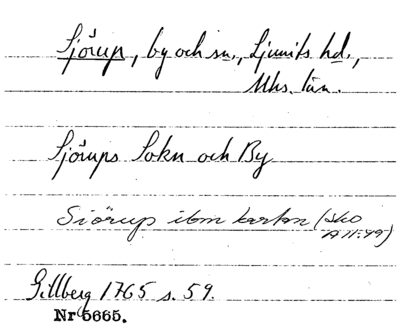 Sjörup, by och sn., Ljunits hd.,
Mhs. län.
Sjörups Sokn och By
Siörup ibm kartan (sko
A 11:49)
Gillberg 1765 s. 59.
Nr 5665.